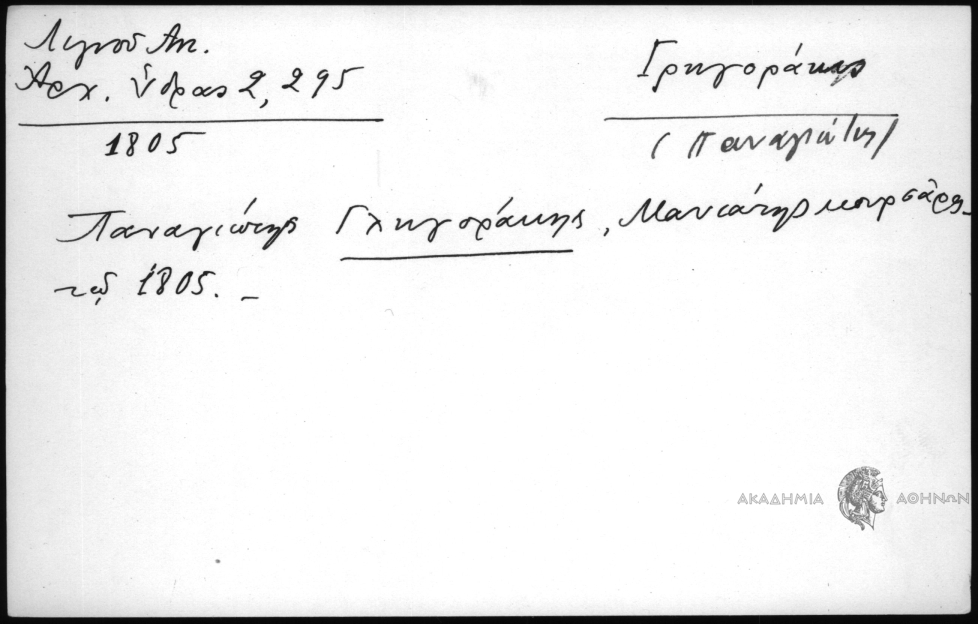 Λιγνοῦ Αντ.
Ἀρχ. Ὕδρας 2, 295
1805
Γρηγοράκης
(Παναγιώτης)
Παναγιώτης Γληγοράκης, Μανιάτης κουρσάρης
τῷ 1805. –
ΑΚΑΔΗΜΙΑ ΑΘΗΝΩΝ